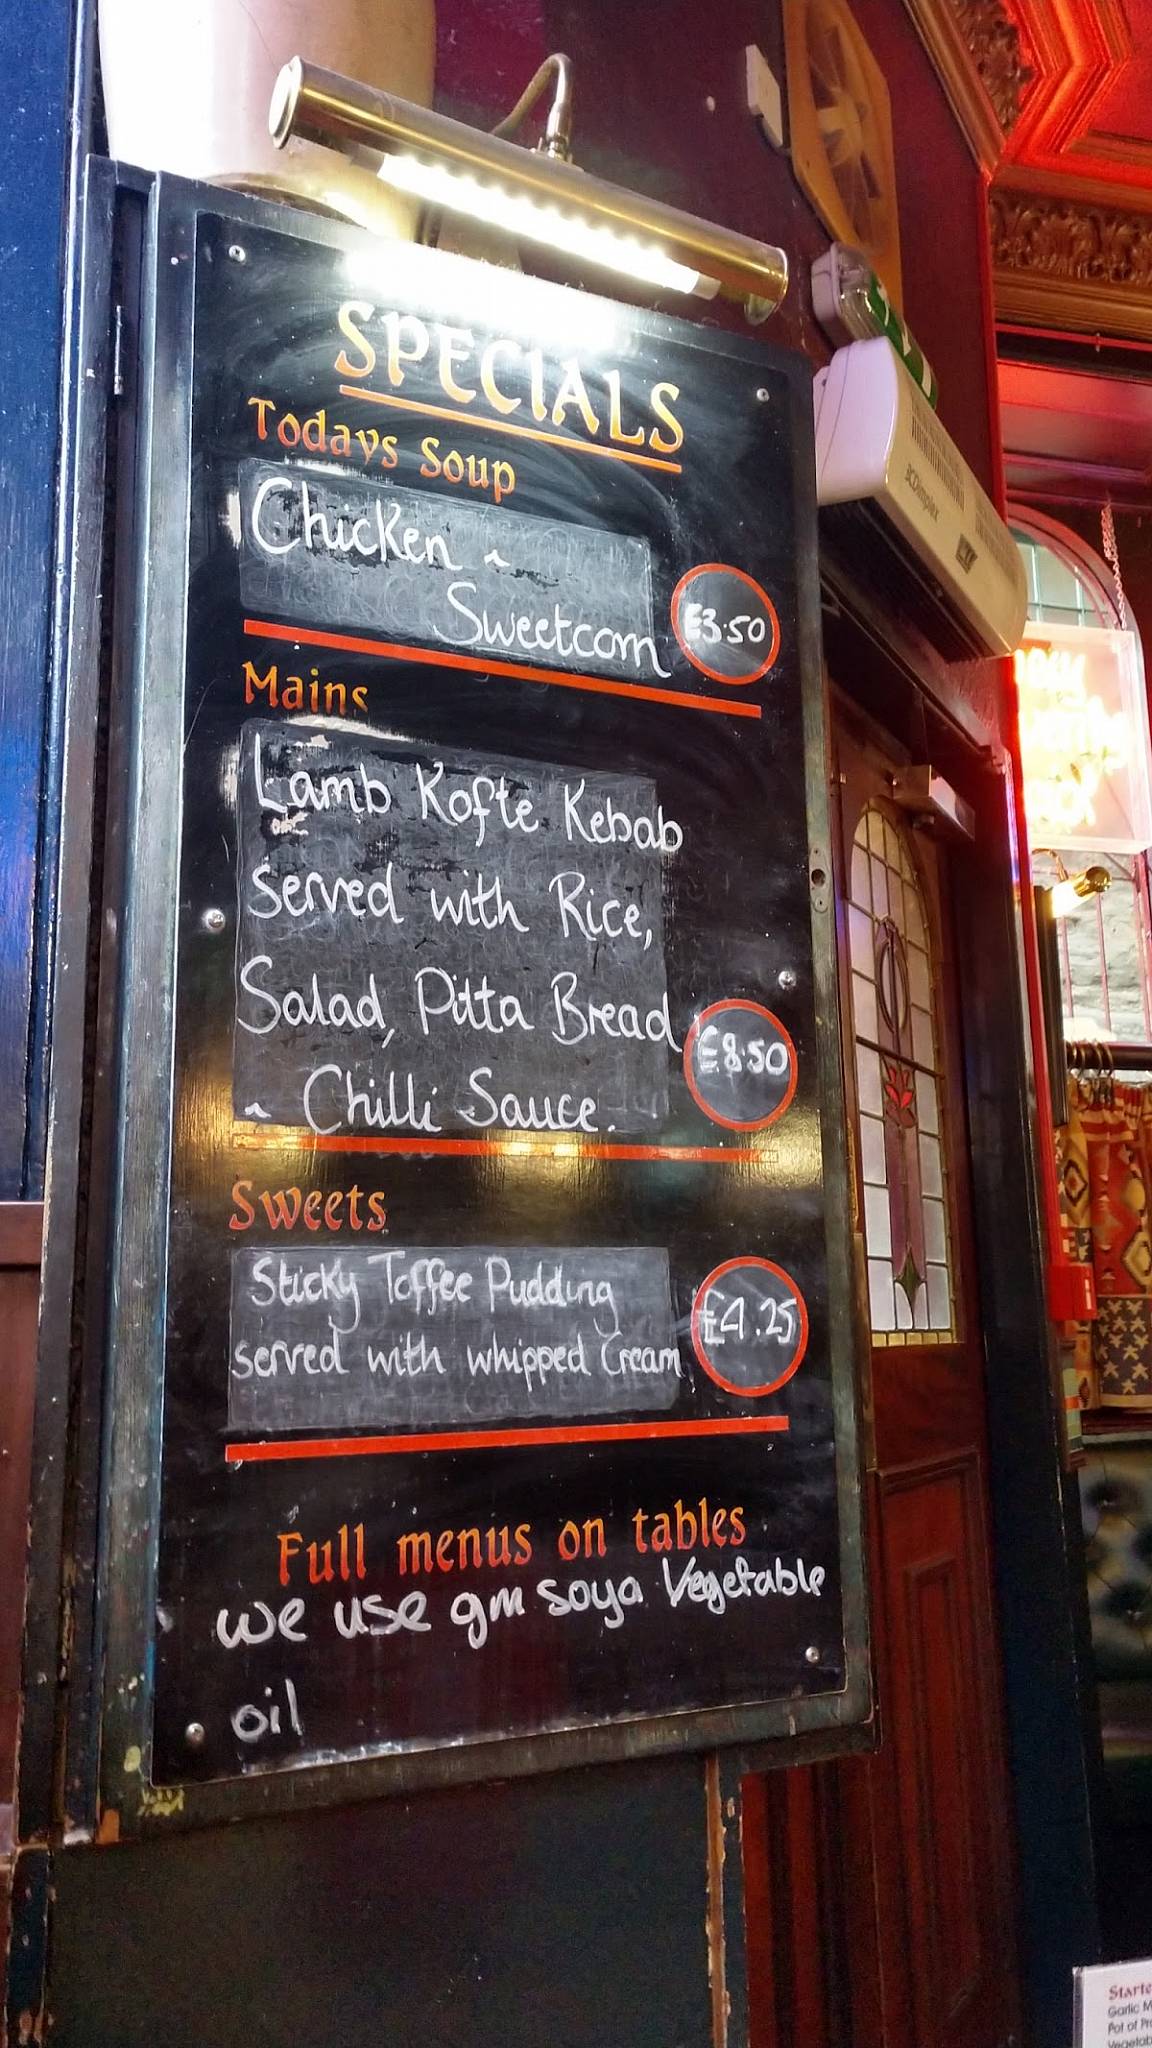 SPECIALS
Todays Soup
Chicken ~
Sweetcorn
£3.50
Mains
Lamb Kofte Kebab
served with Rice,
Salad, Pitta Bread
~ Chilli Sauce.
£8.50
Sweets
Sticky Toffee Pudding
served with whipped Cream
£4.25
Full menus on tables
we use gm soya Vegetable
oil
Dimplex
Garlic
Pot of